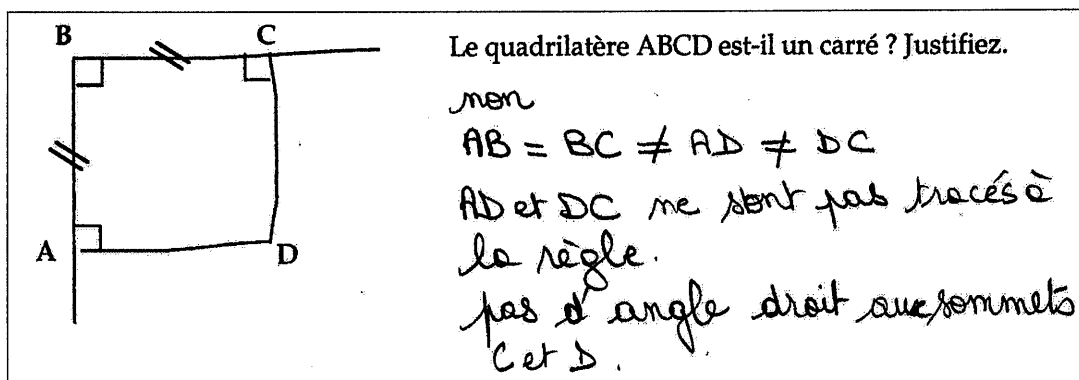 B C
Le quadrilatère ABCD est-il un carré ? Justifiez.
non
AB = BC ≠ AD ≠ DC
AD et DC ne sont pas tracés à
la règle.
A D
pas d'angle droit aux sommets
C et D.